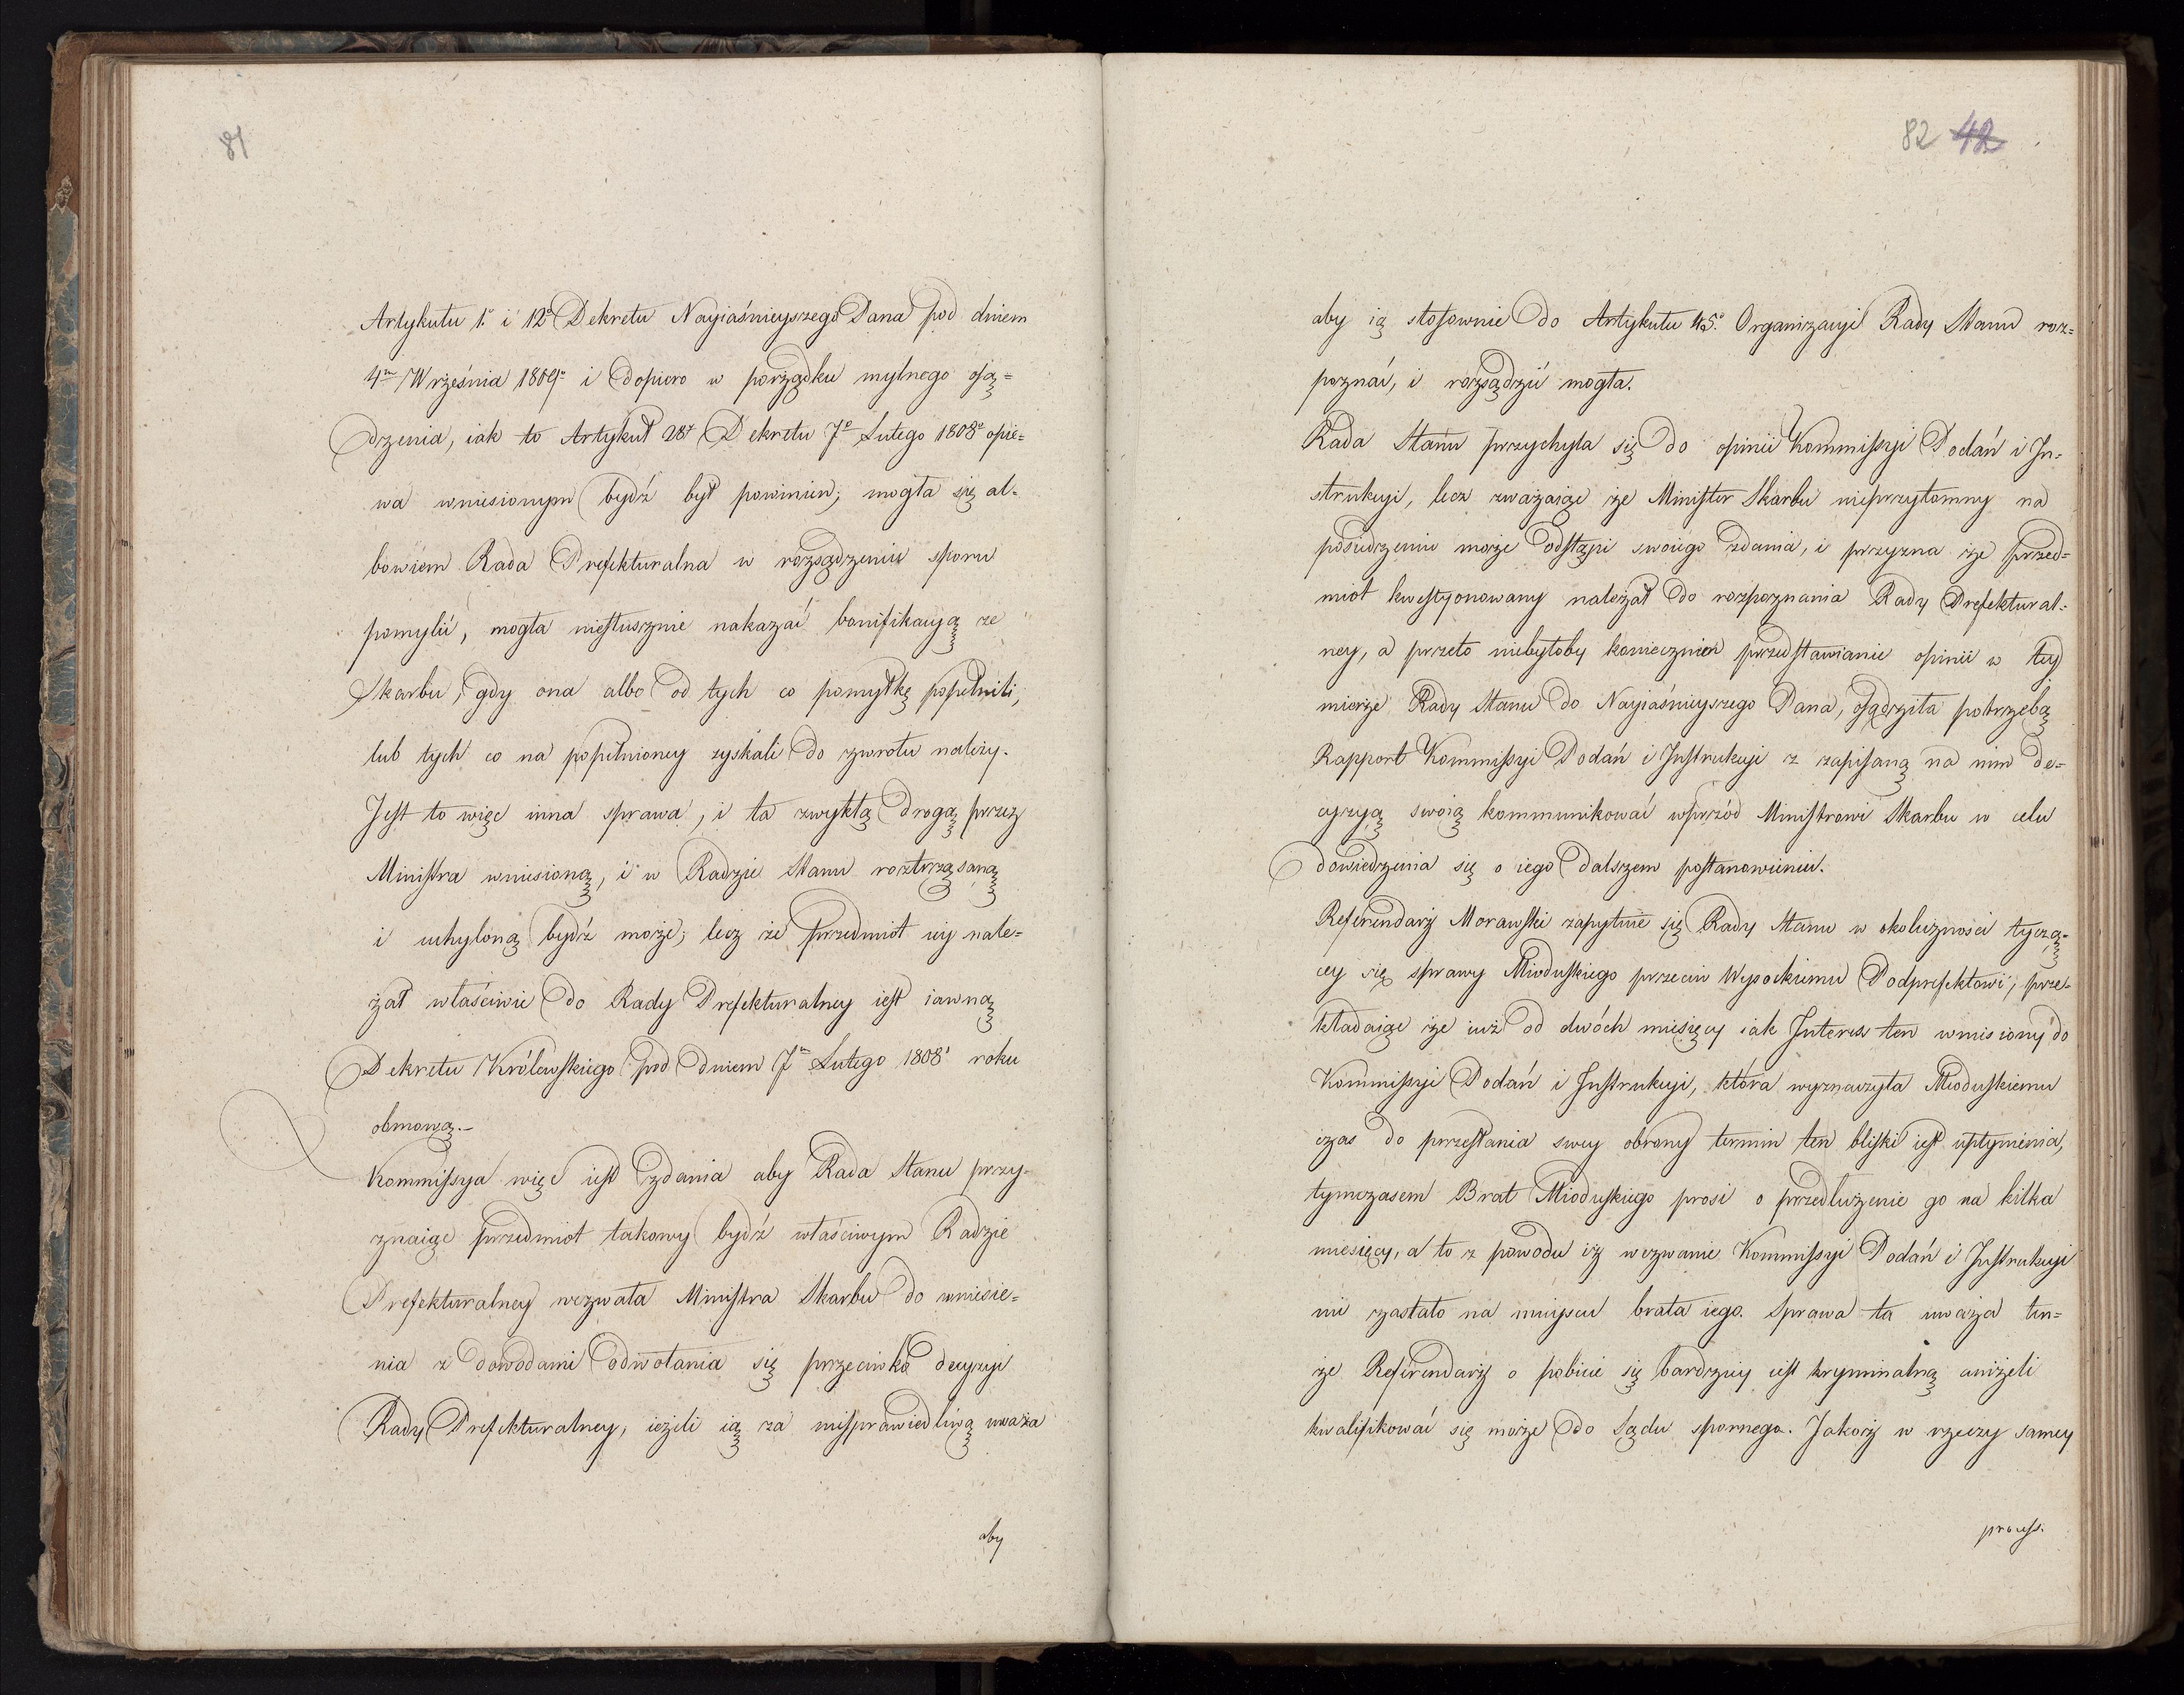 81
Artykułu 1º i 12º Dekretu Nayiaśnieyszego Pana pod dniem
4m Września 1809º i dopiero w porządku mylnego osą=
dzenia, iak to Artykuł 28y Dekretu 7º Lutego 1808º opie=
wa wniesionym bydź był powinien, mogła się al=
bowiem Rada Prefekturalna w rozsądzeniu sporu
pomylić, mogła niesłusznie nakazać bonifikacyą ze
Skarbu, gdy ona albo od tych co pomyłkę popełnili,
lub tych co na popełnioney zyskali do zwrotu należy.
Jest to więc inna sprawa, i ta zwykłą drogą przez
Ministra wniesioną, i w Radzie Stanu roztrząsaną
i uchyloną bydź może, lecz że przedmiot iey nale=
żał właściwie do Rady Prefekturalney iest iawną
Dekretu Królewskiego pod dniem 7m Lutego 1808º roku
obmową.–
Kommissya więc iest zdania aby Rada Stanu przy=
znaiąc przedmiot takowy bydź właściwym Radzie
Prefekturalney wezwała Ministra Skarbu do wniesie=
nia z dowodami odwołania się przeciwko decyzyi
Rady Prefekturalney, ieżeli ią za niesprawiedliwą uważa
aby
82 42
aby ią stosownie do Artykułu 45º Organizacyi Rady Stanu roz=
poznać, i rozsądzić mogła.
Rada Stanu przychyla się do opinii Kommissyi Podań i In=
strukcyi, lecz zważaiąc że Minister Skarbu nieprzytomny na
posiedzeniu może odstąpi swoiego zdania, i przyzna że przed=
miot kwestyonowany należał do rozpoznania Rady Prefektural=
ney, a przeto niebyłoby koniecznem przedstawianie opinii w tey
mierze Rady Stanu do Nayiaśnieyszego Pana, osądziła potrzebą
Rapport Kommissyi Podań i Instrukcyi z zapisaną na nim de=
cyzyą swoią kommunikować wprzód Ministrowi Skarbu w celu
dowiedzenia się o iego dalszem postanowieniu.
Referendarz Morawski zapytuie się Rady Stanu w okoliczności tyczą=
cey się sprawy Mioduskiego przeciw Wysockiemu Podprefektowi, prze=
kładaiąc że iuż od dwóch miesięcy iak Interes ten wniesiony do
Kommissyi Podań i Instrukcyi, która wyznaczyła Mioduskiemu
czas do przesłania swey obrony termin ten bliski iest upłynienia,
tymczasem Brat Mioduskiego prosi o przedłużenie go na kilka
miesięcy, a to z powodu iż wezwanie Kommissyi Podań i Instrukcyi
nie zastało na mieyscu brata iego. Sprawa ta uważa ten=
że Referendarz o pobicie się bardziey iest kryminalną aniżeli
kwalifikować się może do Sądu spornego. Jakoż w rzeczy samey
process.